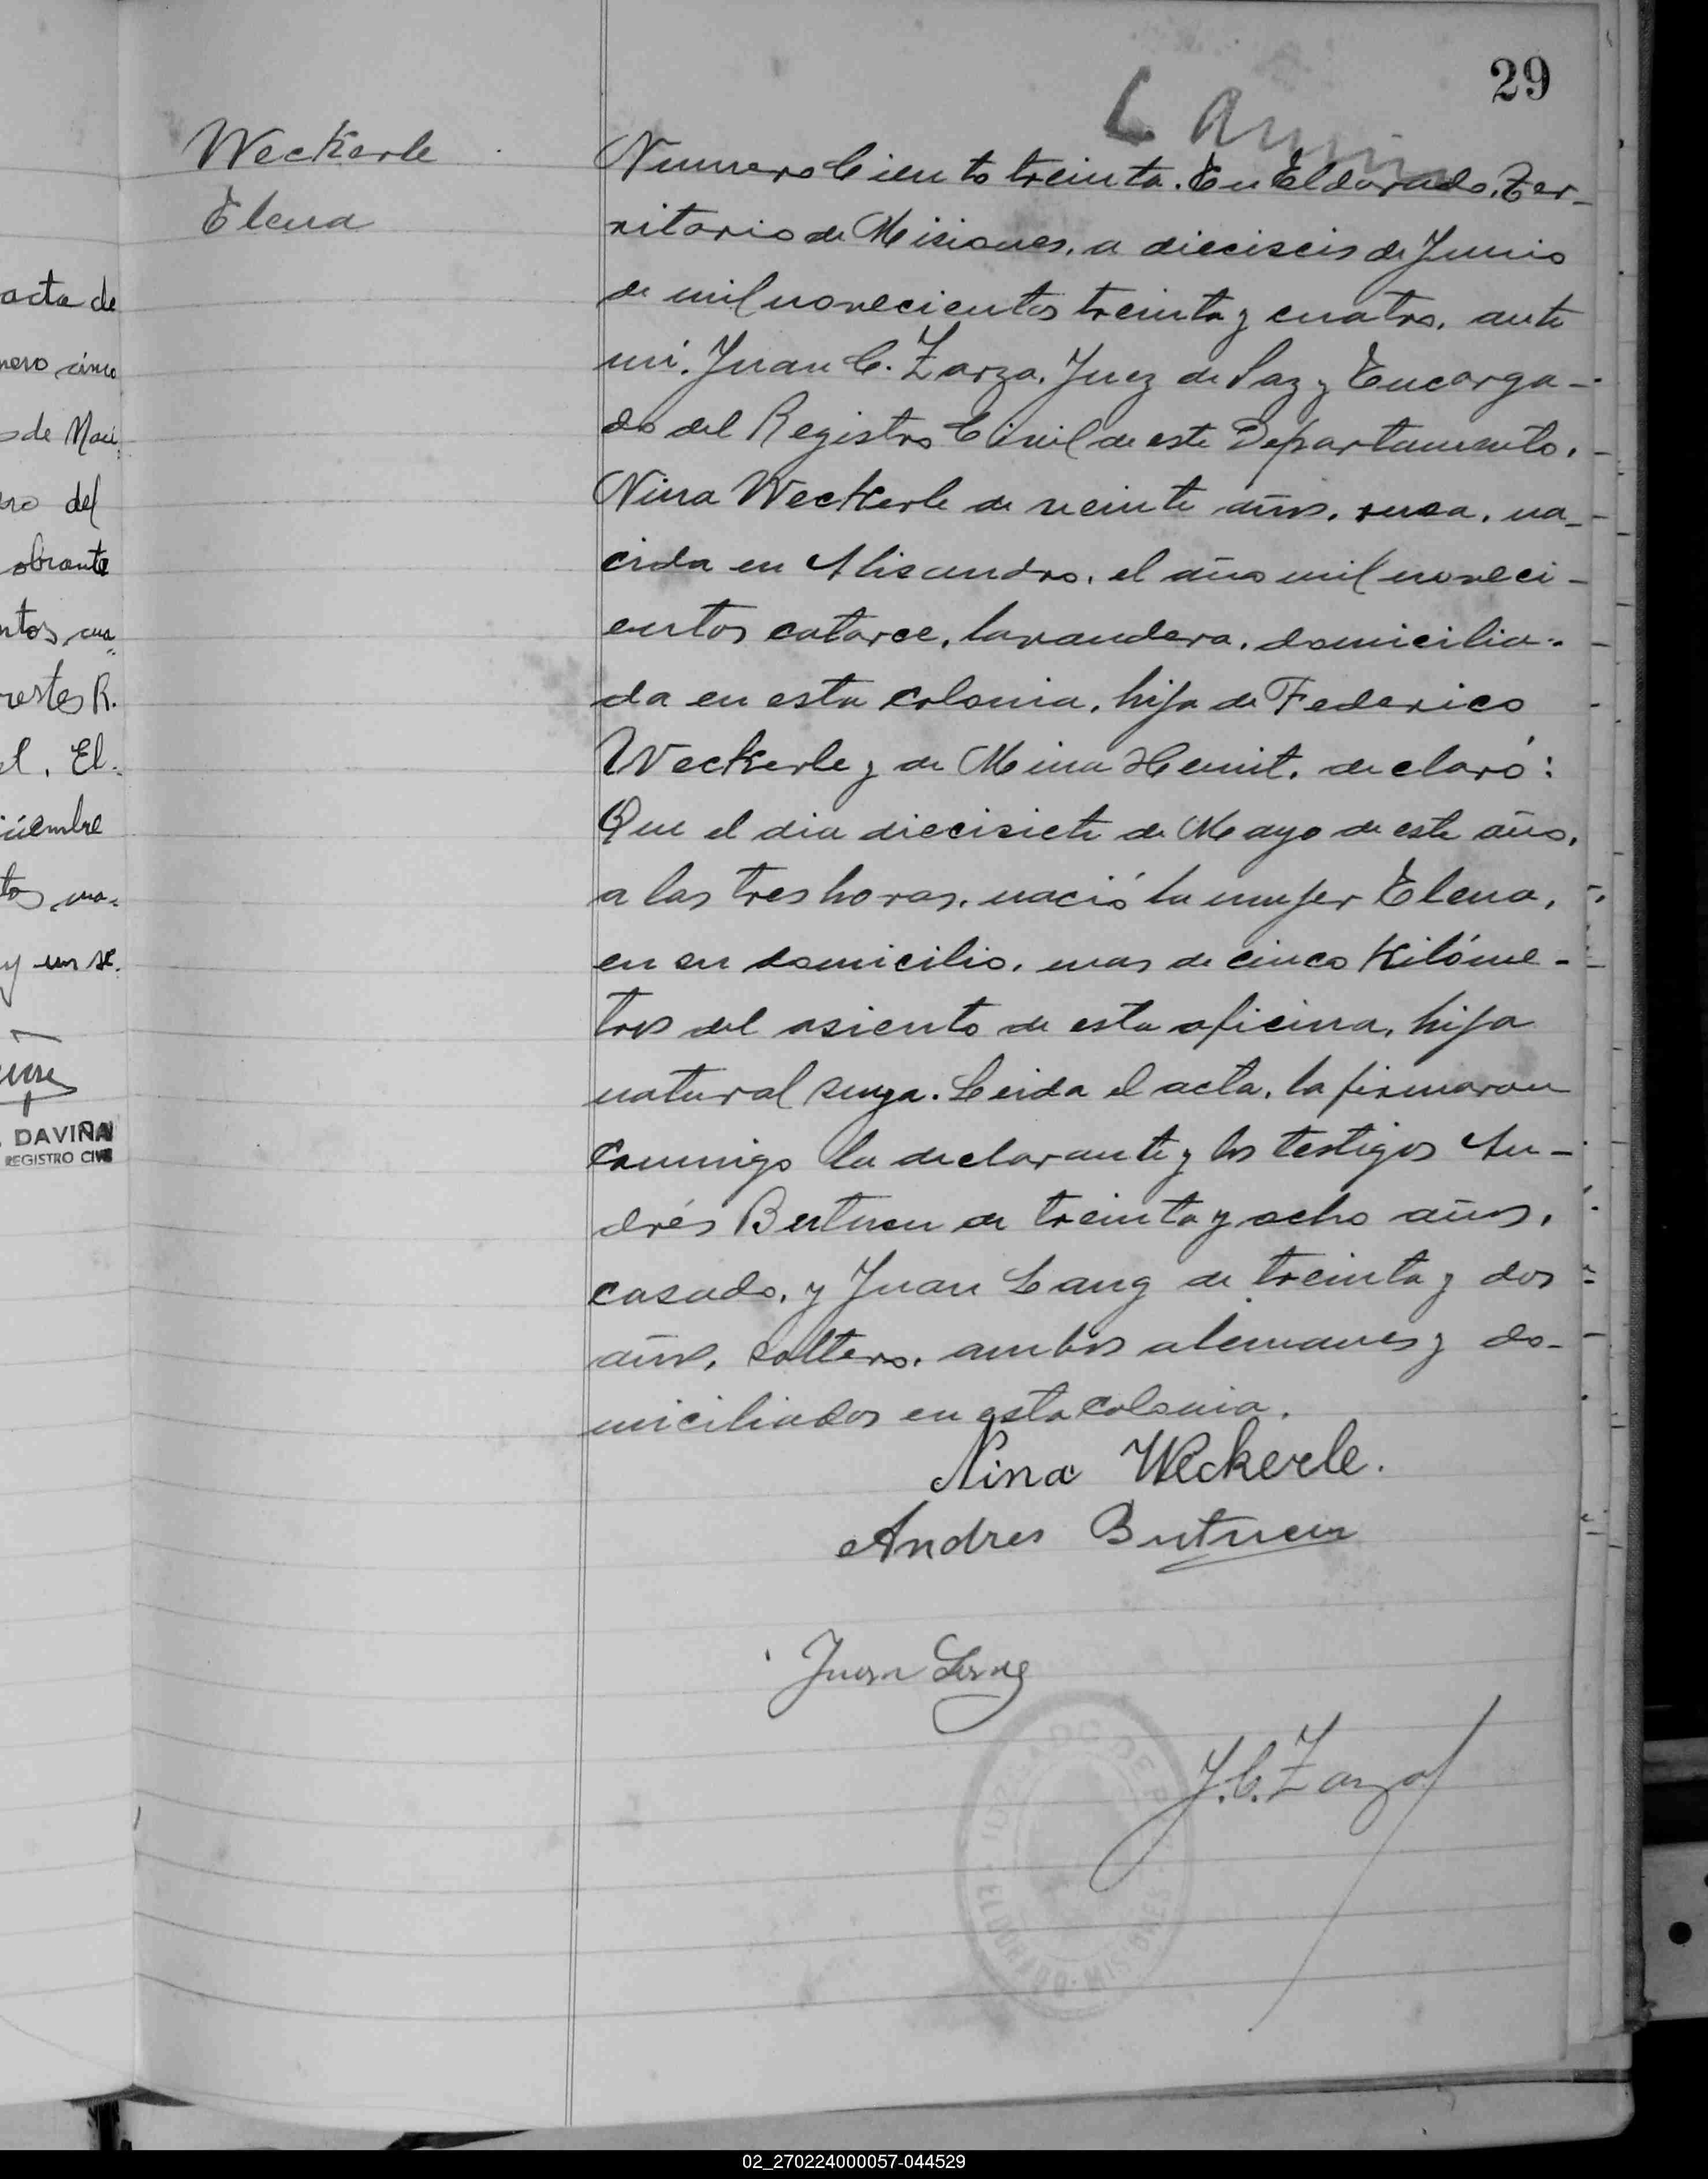 29
Weckerle
Elena
acta de
nero cinco
o de Naci
ro del
obrante
ntos cua
restes R.
l. El
ciembre
tos no-
y un se.
DAVIÑA
REGISTRO CIVIL
Numero Ciento treinta. En Eldorado, Ter-
ritorio de Misiones, a dieciseis de Junio
de mil novecientos treinta y cuatro, ante
mi, Juan C. Zarza, Juez de Paz y Encarga-
do del Registro Civil de este Departamento,
Nina Weckerle de veinte años, rusa, na-
cida en Alisandro, el año mil noveci-
entos catorce, lavandera, domicilia-
da en esta colonia, hija de Federico
Weckerle y de Mina Hemit, declaró:
Que el dia diecisiete de Mayo de este año,
a las tres horas, nació la mujer Elena,
en su domicilio, mas de cinco Kilóme-
tros del asiento de esta oficina, hija
natural suya. Leida el acta, la firmaron
conmigo la declarante y los testigos An-
drés Butucu de treinta y ocho años,
casado, y Juan Lang de treinta y dos
años, soltero, ambos alemanes y do-
miciliados en esta colonia.
Nina Weckerle.
Andres Butucu
Juan Lang
J. C. Zarza
JUZGADO DE P
ELDORADO-MISIONES
02_270224000057-044529